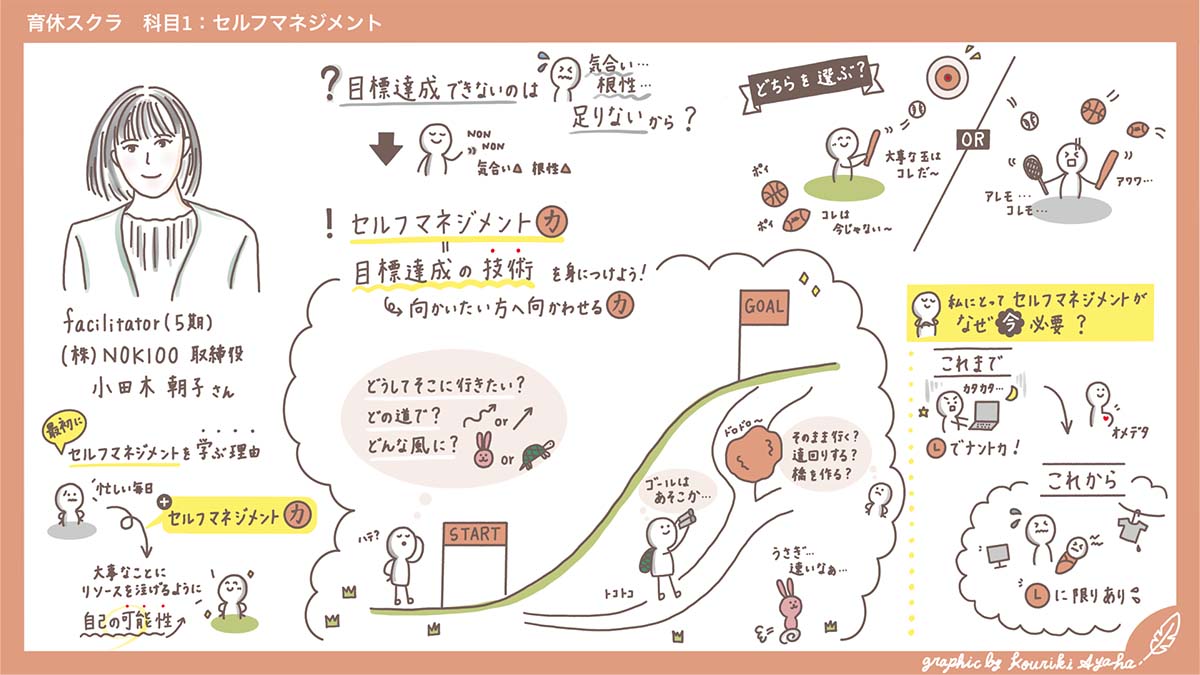 育休スクラ 科目1：セルフマネジメント
facilitator(5期)
(株)NOKIOO 取締役
小田木 朝子さん
最初に
セルフマネジメントを学ぶ理由
忙しい毎日
+
セルフマネジメント力
大事なことに
リソースを注げるように
自己の可能性
?目標達成できないのは
気合い…
根性…
足りないから？
NON
NON
気合い△ 根性△
! セルフマネジメント力
=
目標達成の技術 を身につけよう!
向かいたい方へ向かわせる力
どうしてそこに行きたい?
どの道で? or
どんな風に? or
ハテ?
START
トコトコ
ゴールは
あそこか…
ドロドロ〜
そのまま行く?
遠回りする?
橋を作る?
うさぎ…
速いなぁ…
GOAL
どちらを選ぶ?
大事な玉は
コレだ〜
ポイ
ポイ
コレは
今じゃない〜
OR
アレモ…
コレモ…
アワワ…
私にとってセルフマネジメントが
なぜ今必要?
これまで
カタカタ…
Lでナントカ!
オメデタ
これから
Lに限りあり
graphic by Kouriki Ayaha.